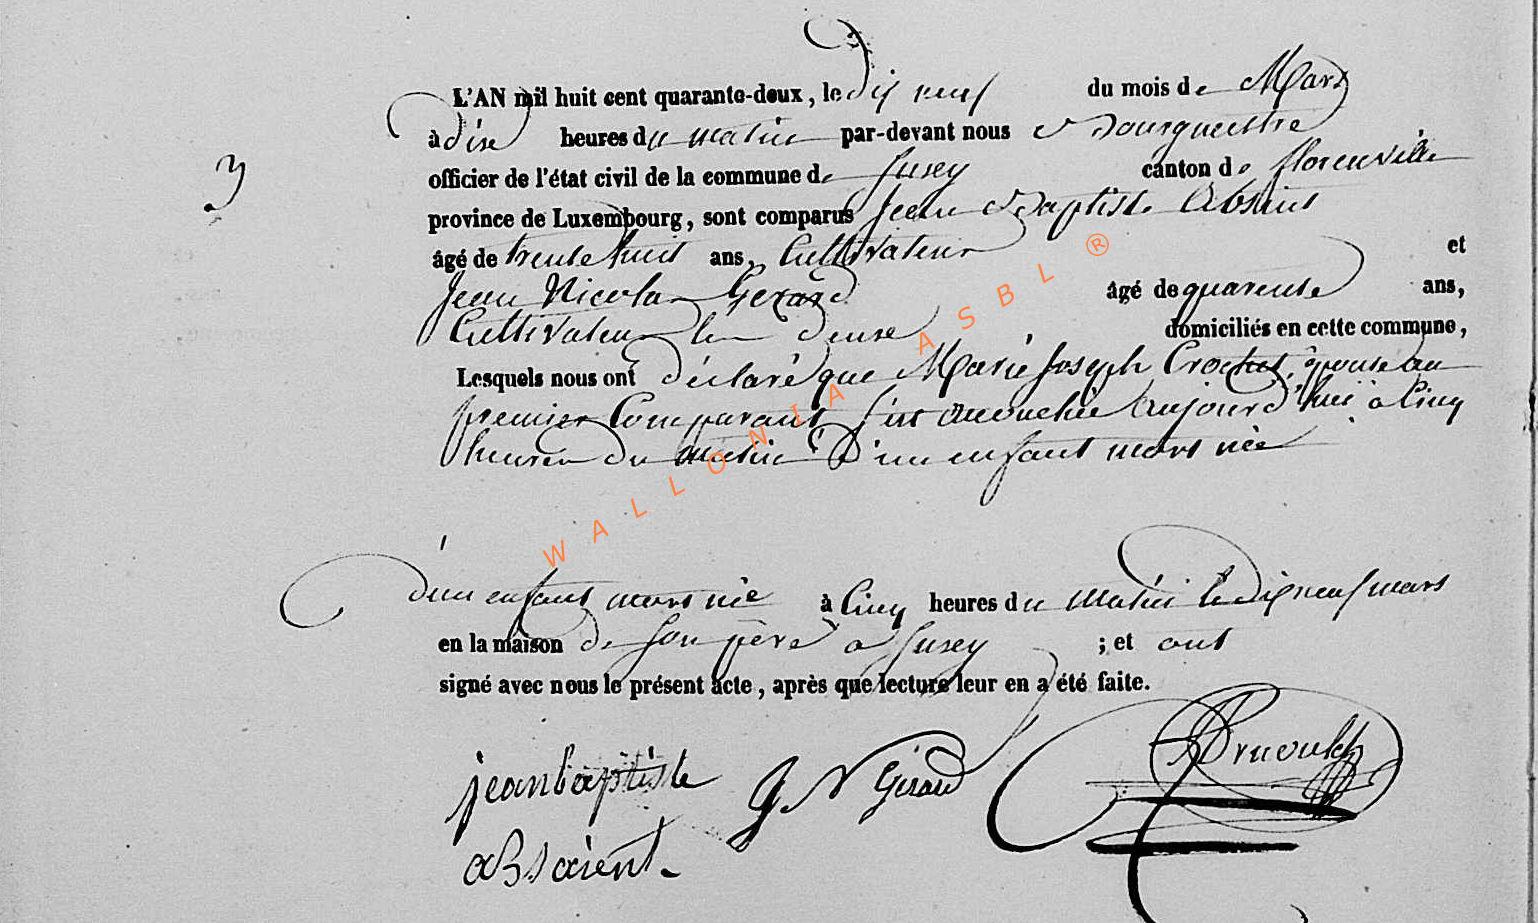 L'AN mil huit cent quarante-deux, le dix neuf du mois de Mars
à dixe heures du matin par-devant nous
3
officier de l'état civil de la commune de Jusey canton de florenville
province de Luxembourg, sont comparus Jean Baptiste Absaint
âgé de trente huit ans, Cultivateur et
Jean Nicolas Gerard âgé de quarente ans,
Cultivateur domiciliés en cette commune,
Lesquels nous ont déclaré que Marie Joseph Crochet, épouse du
premier Comparant fut accouchée aujourd'hui à Cinq
heures du matin D'un enfant mort née
WALLONIA ASBL ®
d'un enfant mort née à Cinq heures du matin le dix neuf mars
en la maison de son père à Jusey ; et ont
signé avec nous le présent acte, après que lecture leur en a été faite.
jeanbaptiste J N Gerard
absaient.